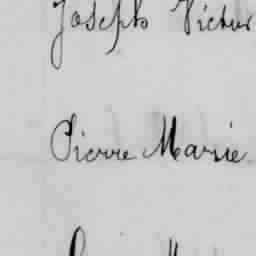 Joseph Victor
Pierre Marie